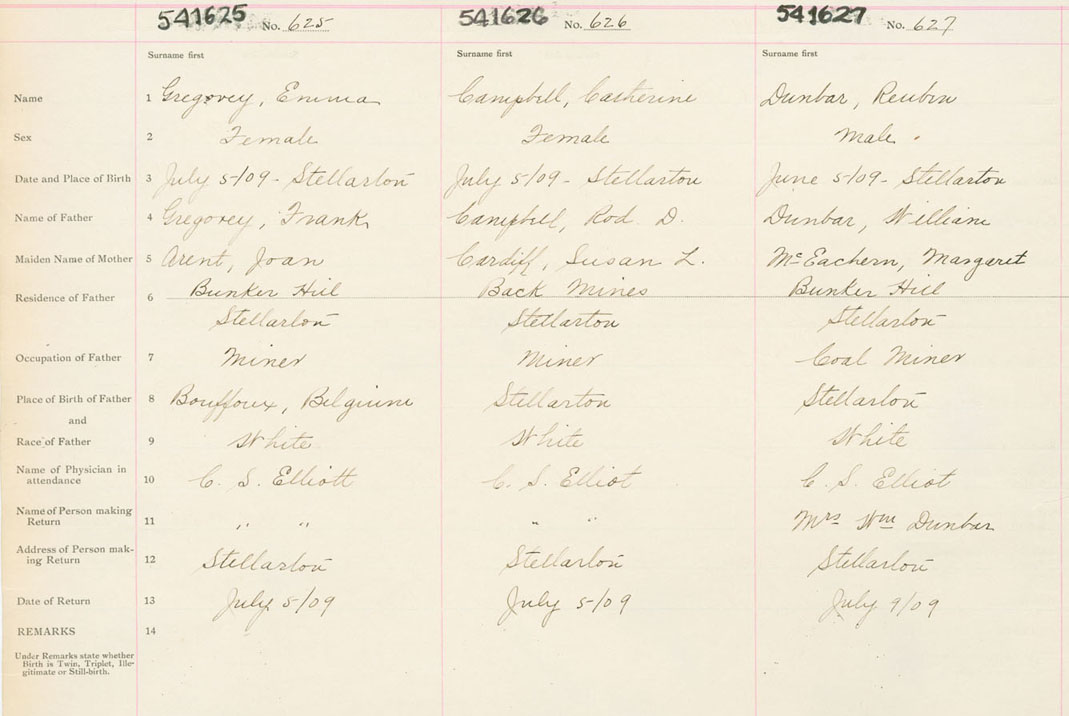 541625 No. 625 541626 No. 626 541627 No. 627
Surname first Surname first Surname first
Name 1 Gregorey, Emma Campbell, Catherine Dunbar, Reuben
Sex 2 Female Female Male
Date and Place of Birth 3 July 5/09 - Stellarton July 5/09 - Stellarton June 5/09 - Stellarton
Name of Father 4 Gregorey, Frank Campbell, Rod D. Dunbar, William
Maiden Name of Mother 5 Arent, Joan Cardiff, Susan L. McEachern, Margaret
Residence of Father 6 Bunker Hill Back Mines Bunker Hill
Stellarton Stellarton Stellarton
Occupation of Father 7 Miner Miner Coal Miner
Place of Birth of Father 8 Bouffoux, Belgium Stellarton Stellarton
and
Race of Father 9 White White White
Name of Physician in
attendance 10 C. S. Elliott C. S. Elliot C. S. Elliot
Name of Person making
Return 11 " " " " Mrs Wm Dunbar
Address of Person mak-
ing Return 12 Stellarton Stellarton Stellarton
Date of Return 13 July 5/09 July 5/09 July 9/09
REMARKS 14
Under Remarks state whether
Birth is Twin, Triplet, Ille-
gitimate or Still-birth.